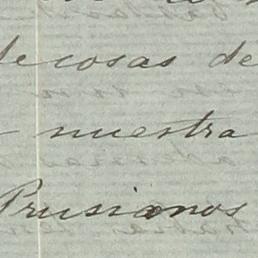 de cosas de
nuestra
Prusianos